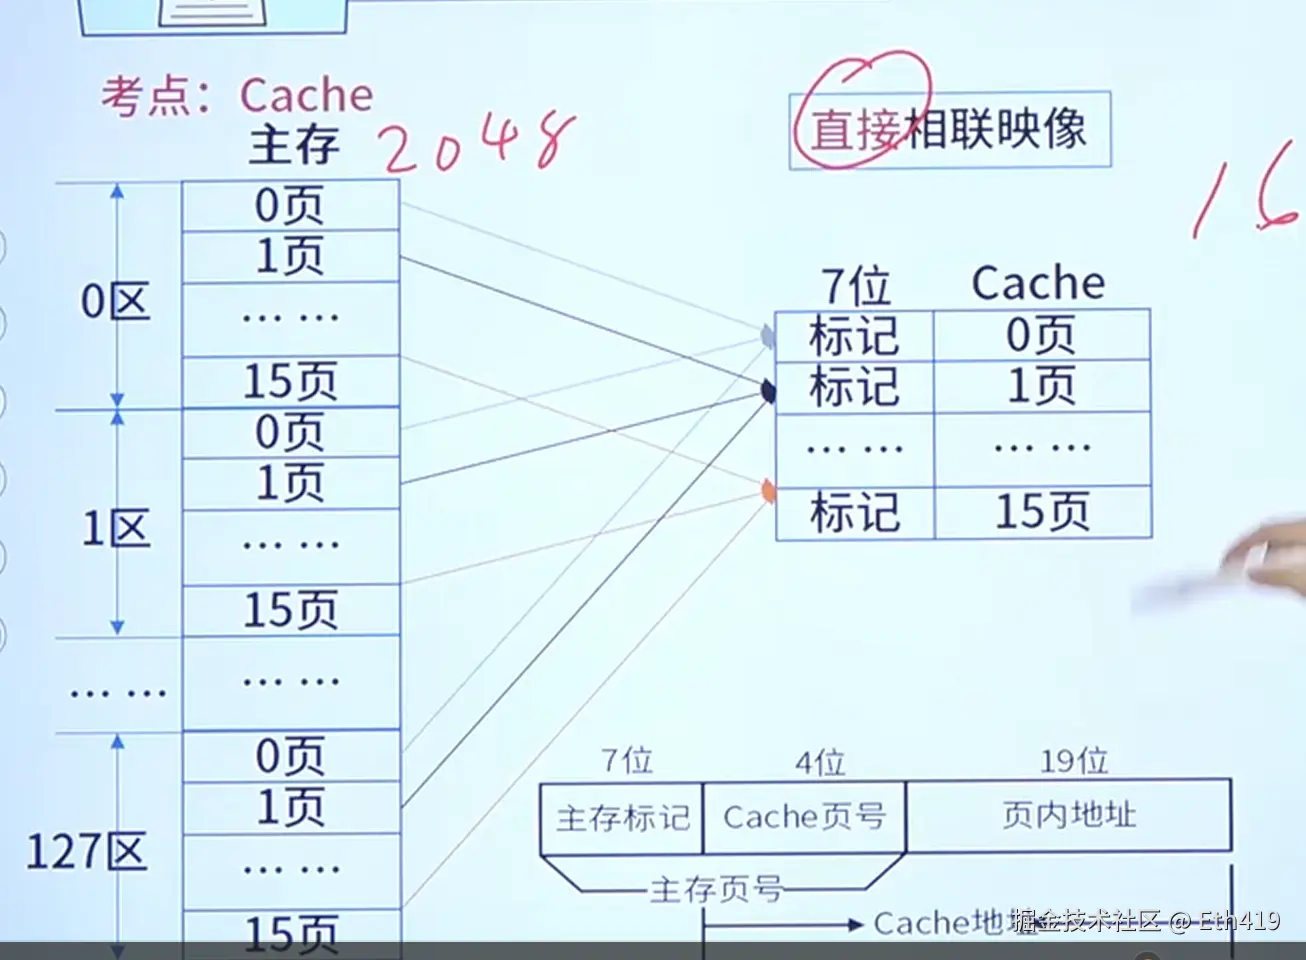 考点：Cache
主存
2048
直接相联映像
16
0页
1页
... ...
15页
0区
0页
1页
... ...
15页
1区
... ...
... ...
0页
1页
... ...
15页
127区
7位
Cache
标记
0页
标记
1页
... ...
... ...
标记
15页
7位
4位
19位
主存标记
Cache页号
页内地址
主存页号
Cache地址
掘金技术社区 @ Eth419